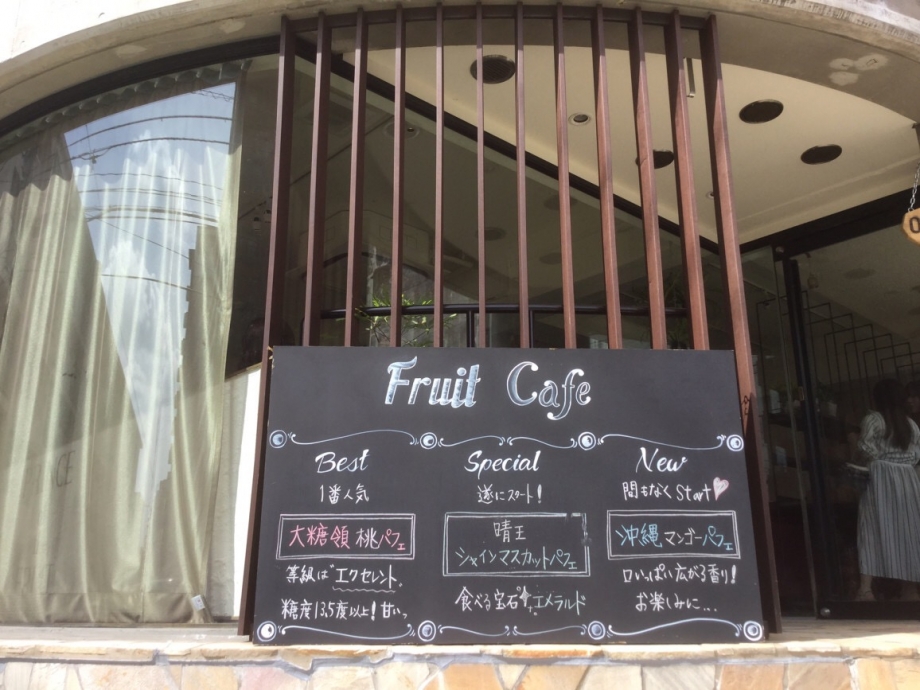 Fruit Cafe
Best
1番人気
大糖領 桃パフェ
等級は"エクセレント"
糖度13.5度以上!甘いっ
Special
遂にスタート!
晴王
シャインマスカットパフェ
食べる宝石 エメラルド
New
間もなくStart
沖縄マンゴーパフェ
口いっぱい広がる香り!
お楽しみに...